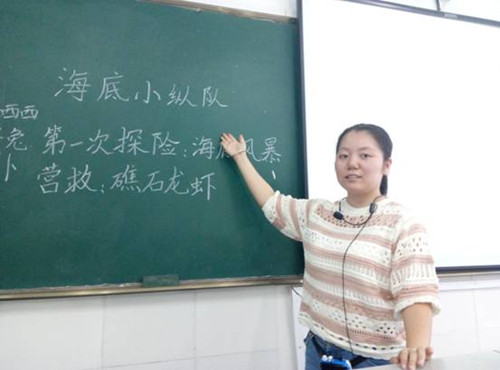 海底小纵队
西西
兔
第一次探险:海底风暴
营救:礁石龙虾